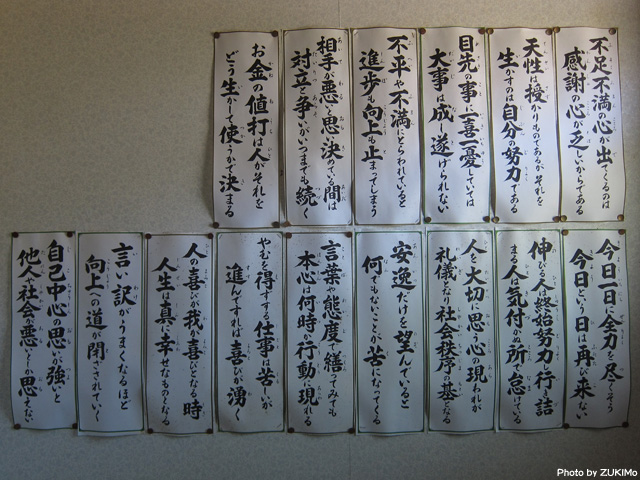 不足不満の心が出てくるのは
感謝の心が乏しいからである
天性は授かりものであるがそれを
生かすのは自分の努力である
目先の事に一喜一憂していては
大事は成し遂げられない
不平や不満にとらわれていると
進歩も向上も止まってしまう
相手が悪いと思い決めている間は
対立と争いがいつまでも続く
お金の値打は人がそれを
どう生かして使うかで決まる
今日一日に全力を尽くそう
今日という日は再び来ない
伸びる人終始努力し行き詰
まる人は気付かぬ所で怠けている
人を大切に思う心の現われが
礼儀となり社会秩序の基となる
安逸だけを望んでいると
何でもないことが苦になってくる
言葉や態度を繕ってみても
本心は何時か行動に現れる
やむを得ずする仕事は苦しいが
進んですれば喜びが湧く
人の喜びが我が喜びとなる時
人生は真に幸せなものとなる
言い訳がうまくなるほど
向上への道が閉ざされていく
自己中心の思いが強いと
他人や社会が悪いとしか思えない
Photo by ZUKIMo